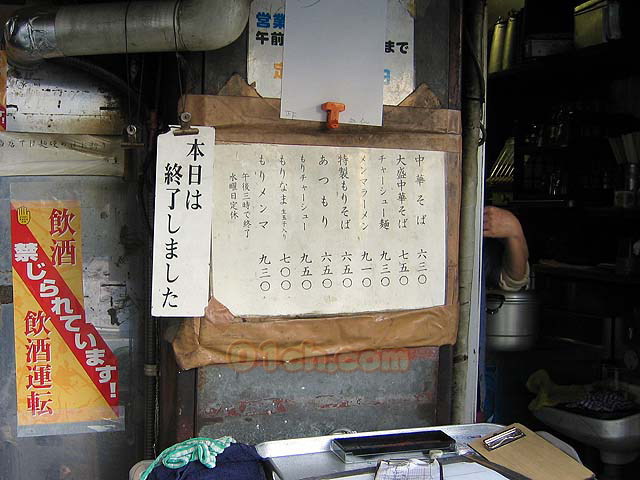 営業
午前
まで
本日は
終了しました
中華そば 六三〇
大盛中華そば 七五〇
チャーシュー麺 九三〇
メンマラーメン 九一〇
特製もりそば 六五〇
あつもり 六五〇
もりチャーシュー 九五〇
もりなま 生玉子入り 七〇〇
もりメンマ 九三〇
午後三時で終了
水曜日定休
飲酒
禁じられています!
飲酒運転
01ch.com